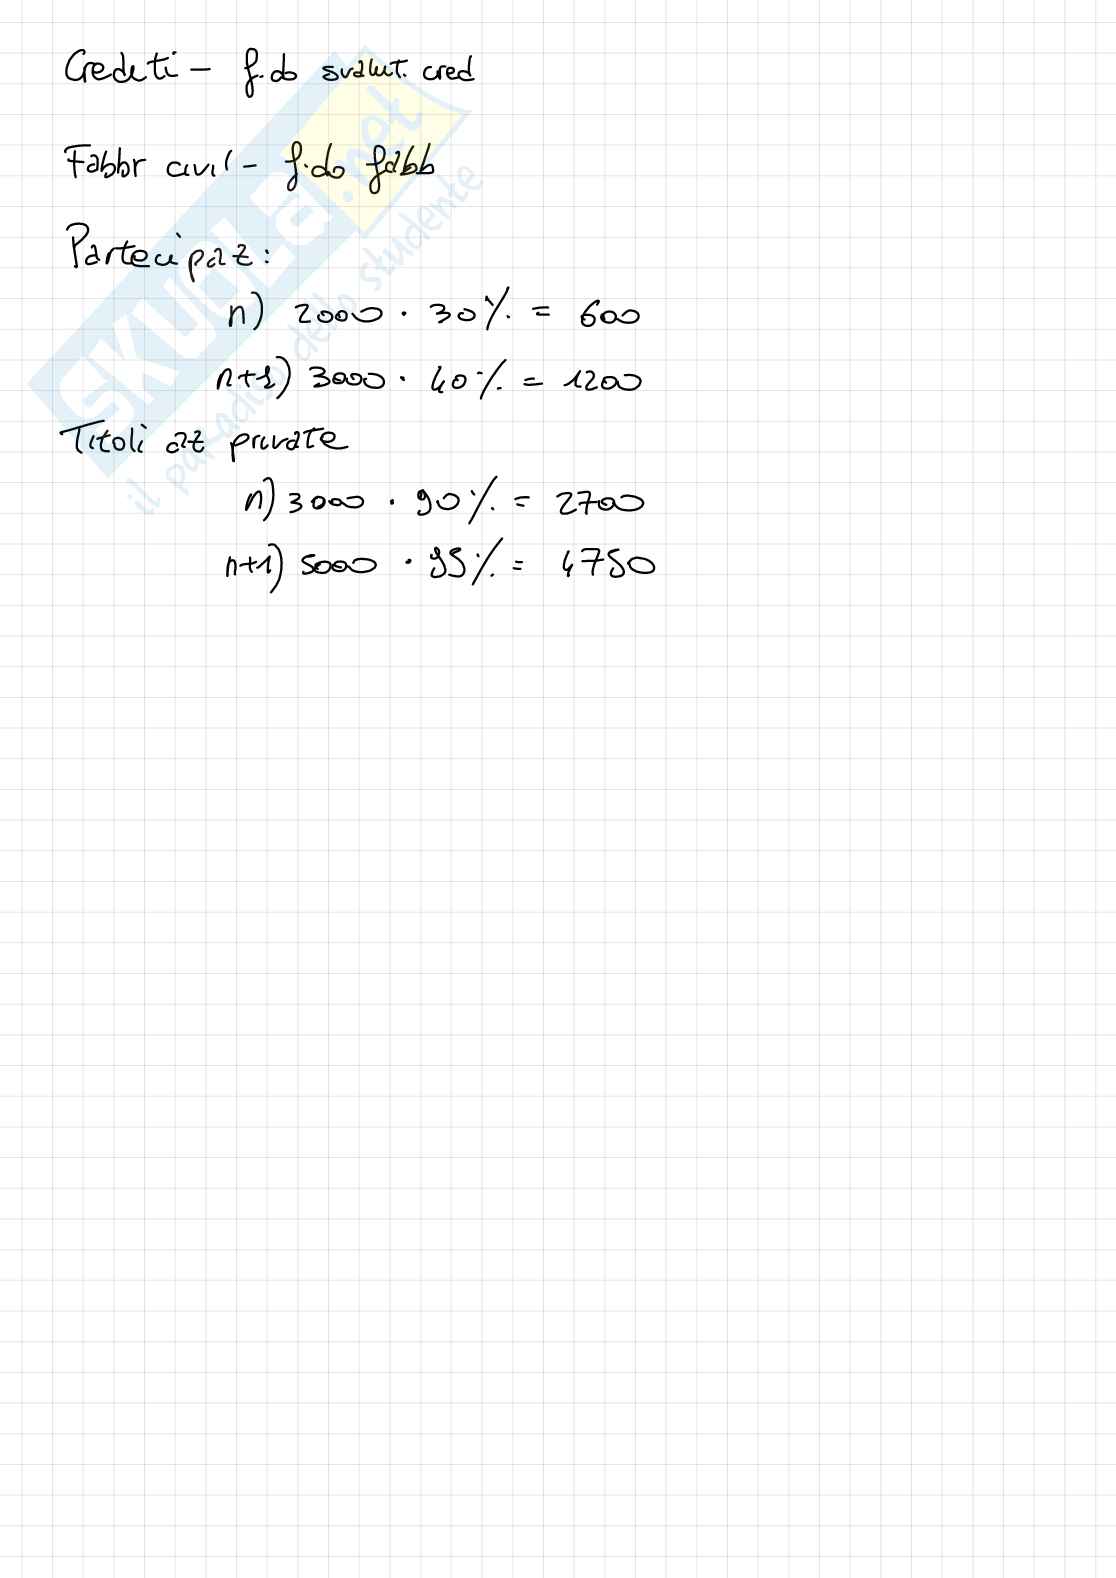 Crediti - f.do svalut. cred
Fabbr civil - f.do fabb
Partecipaz:
n) 2000 · 30% = 600
n+1) 3000 · 40% = 1200
Titoli az private
n) 3000 · 90% = 2700
n+1) 5000 · 95% = 4750
SKUOLA.net
il paradiso dello studente